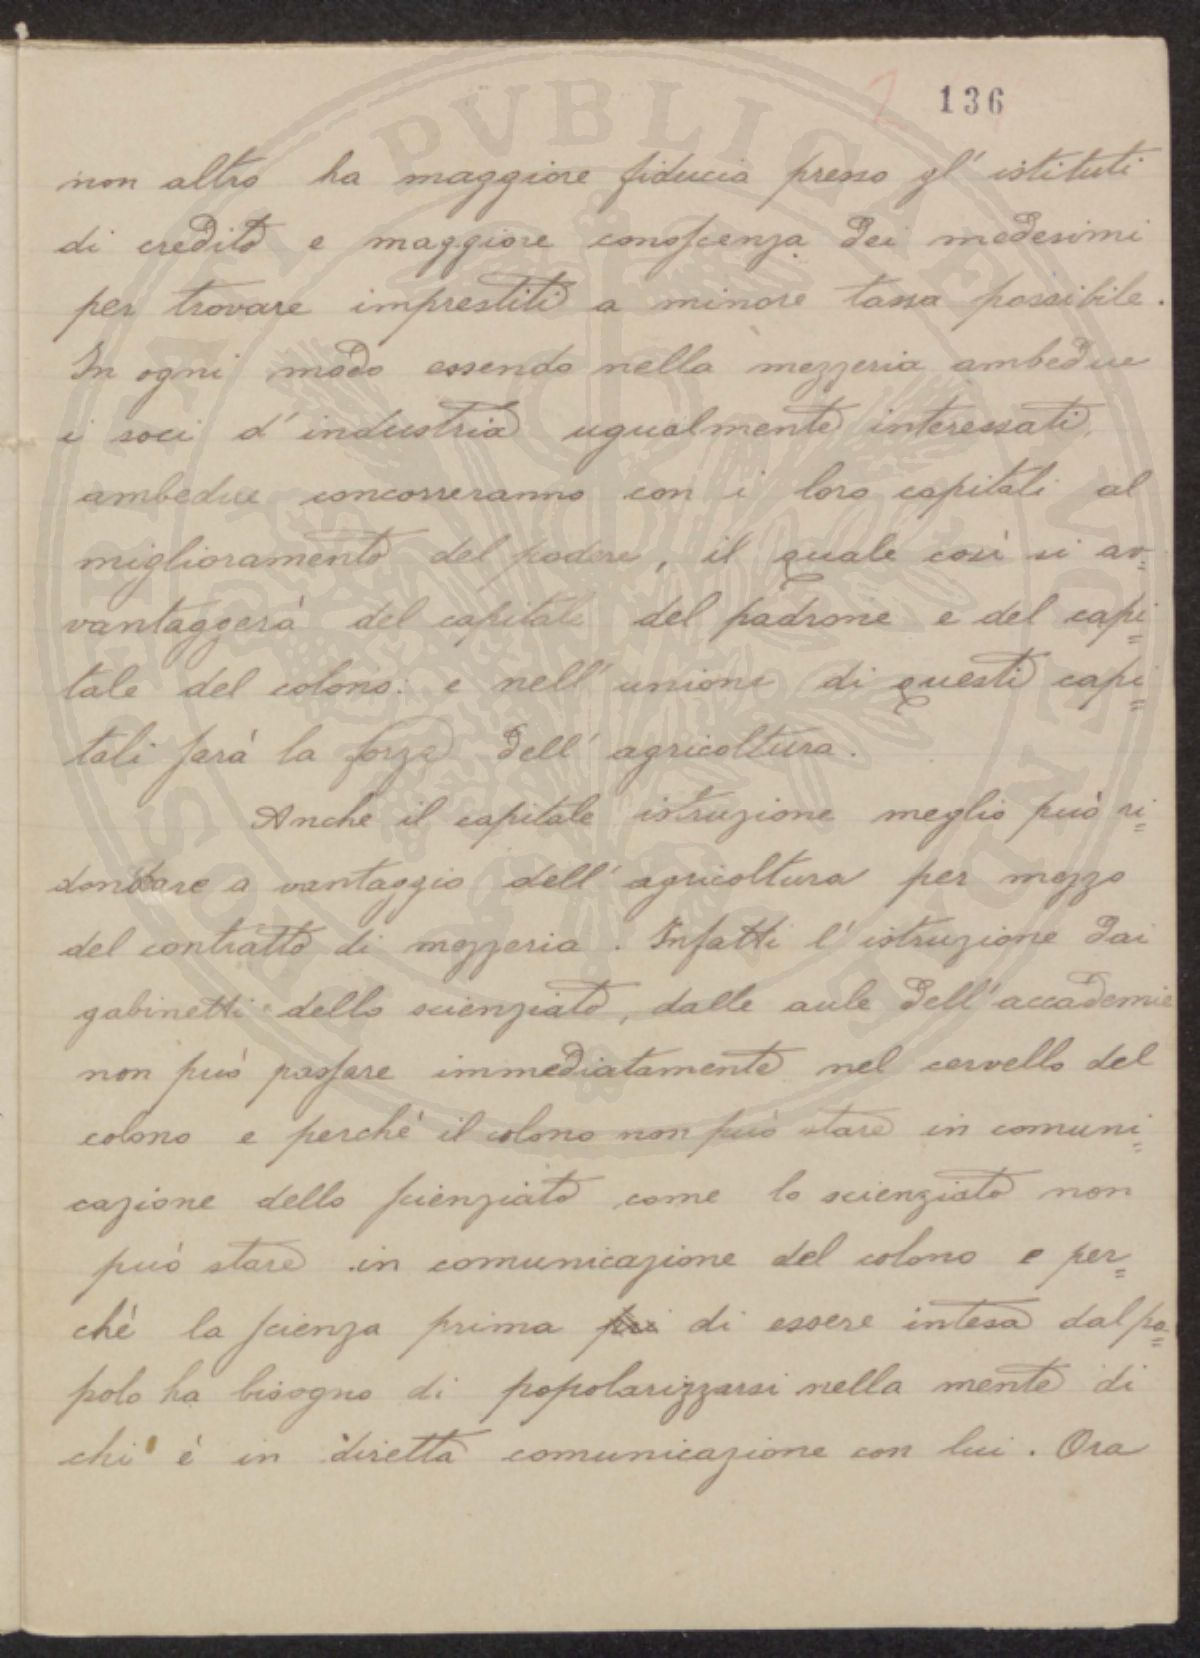 136
non altro ha maggiore fiducia presso gl' istituti
di credito e maggiore conoscenza dei medesimi
per trovare imprestiti a minore tassa possibile.
In ogni modo essendo nella mezzeria ambedue
i soci d' industria ugualmente interessati,
ambedue concorreranno con i loro capitali al
miglioramento del podere, il quale così si av=
vantaggerà del capitale del padrone e del capi=
tale del colono: e nell' unione di questi capi=
tali sarà la forza dell' agricoltura.
Anche il capitale istruzione meglio può ri=
dondare a vantaggio dell' agricoltura per mezzo
del contratto di mezzeria. Infatti l' istruzione dai
gabinetti dello scienziato, dalle aule dell' accademie
non può passare immediatamente nel cervello del
colono e perchè il colono non può stare in comuni=
cazione dello scienziato come lo scienziato non
può stare in comunicazione del colono e per=
chè la scienza prima di essere intesa dal po=
polo ha bisogno di popolarizzarsi nella mente di
chi è in diretta comunicazione con lui. Ora